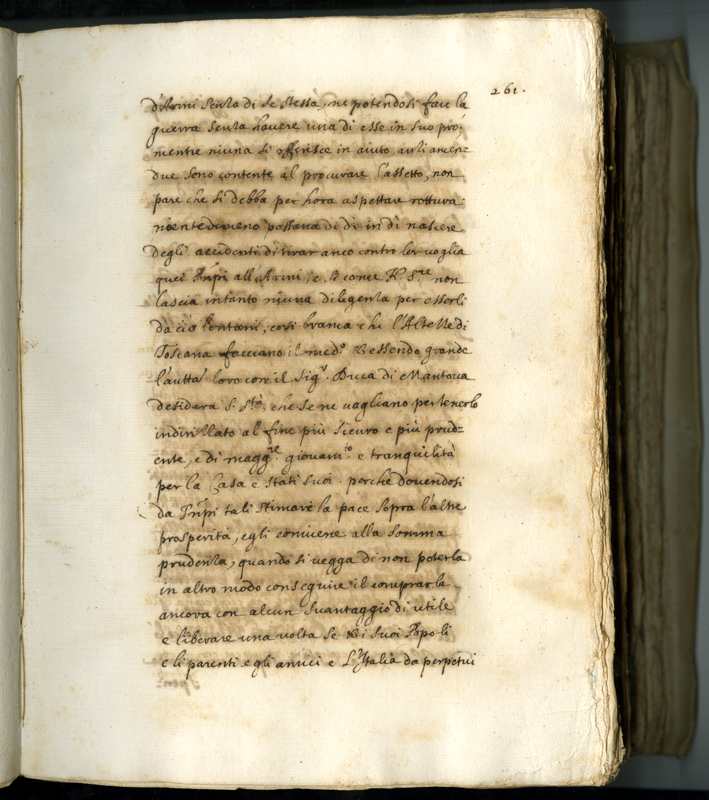 261.
d'Armi senza di se stessa, ne potendosi fare la
guerra senza havere una di esse in suo prò,
mentre niuna si offerisce in aiuto, anzi amene
due sono contente al procurare l'assetto, non
pare che si debba per hora aspettare rottura:
nõentedimeno possana di dì in dì nascere
degli accidenti di tirar anco contro lor voglia
quei Prñpi all'Armi, e come N. S.re non
lascia intanto niuna diligenza per esserli
da ciò lontani, così brama che l'Altezze di
Toscana facciano il med.o Et essendo grande
l'autta loro con il Sig.r Duca di Mantova
desidera S. S.tà che se ne vagliano per tenerlo
indirizzato al fine più sicuro e più prud=
ente, e di magg.re giovam.to e tranquilità
per la Casa e stati suoi. perche dovendosi
da Prñpi tali stimare la pace sopra l'altre
prosperità, egli conviene alla somma
prudenza, quando si vegga di non poterla
in altro modo conseguire il comprarla
ancora con alcun svantaggio di utile
e liberare una volta se Et i suoi Popoli
e li parenti e gli amici e L'Italia da perpetui